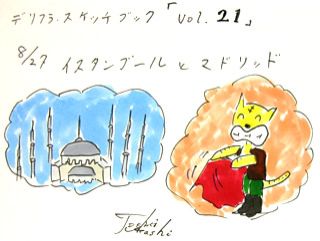 デリフラ.スケッチブック「Vol.21」
8/27 イスタンブールとマドリッド